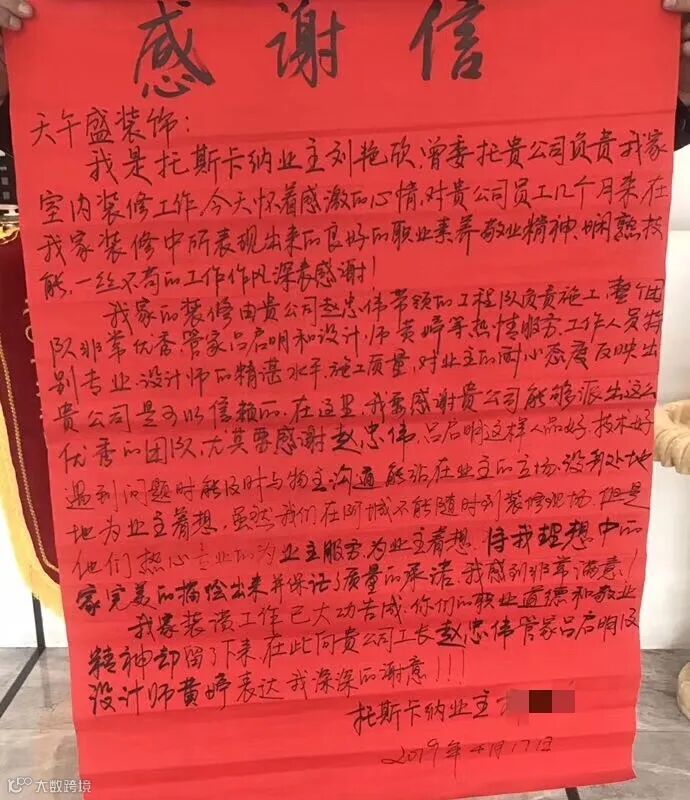 感谢信
天午盛装饰：
我是托斯卡纳业主刘艳欣，曾委托贵公司负责我家
室内装修工作。今天怀着感激的心情，对贵公司员工几个月来，在
我家装修中所表现出来的良好的职业素养敬业精神、娴熟技
能，一丝不苟的工作作风深表感谢！
我家的装修由贵公司赵忠伟带领的工程队负责施工，整个团
队非常优秀，管家吕启明和设计师黄婷等热情服务，工作人员特
别专业，设计师的精湛水平，施工质量，对业主的耐心态度反映出
贵公司是可以信赖的，在这里，我要感谢贵公司能够派出这么
优秀的团队，尤其要感谢赵忠伟、吕启明这样人品好，技术好
遇到问题时能及时与物主沟通能站在业主的立场，设身处地
地为业主着想，虽然我们在阿城不能随时到装修现场，但是
他们热心专业的为业主服务，为业主着想，将我理想中的
家完美的描绘出来并保证了质量的承诺，我感到非常满意！
我家装潢工作已大功告成，你们的职业道德和敬业
精神却留了下来，在此向贵公司工长赵忠伟管家吕启明及
设计师黄婷表达我深深的谢意！！！
托斯卡纳业主
2019年4月17日
大数跨境